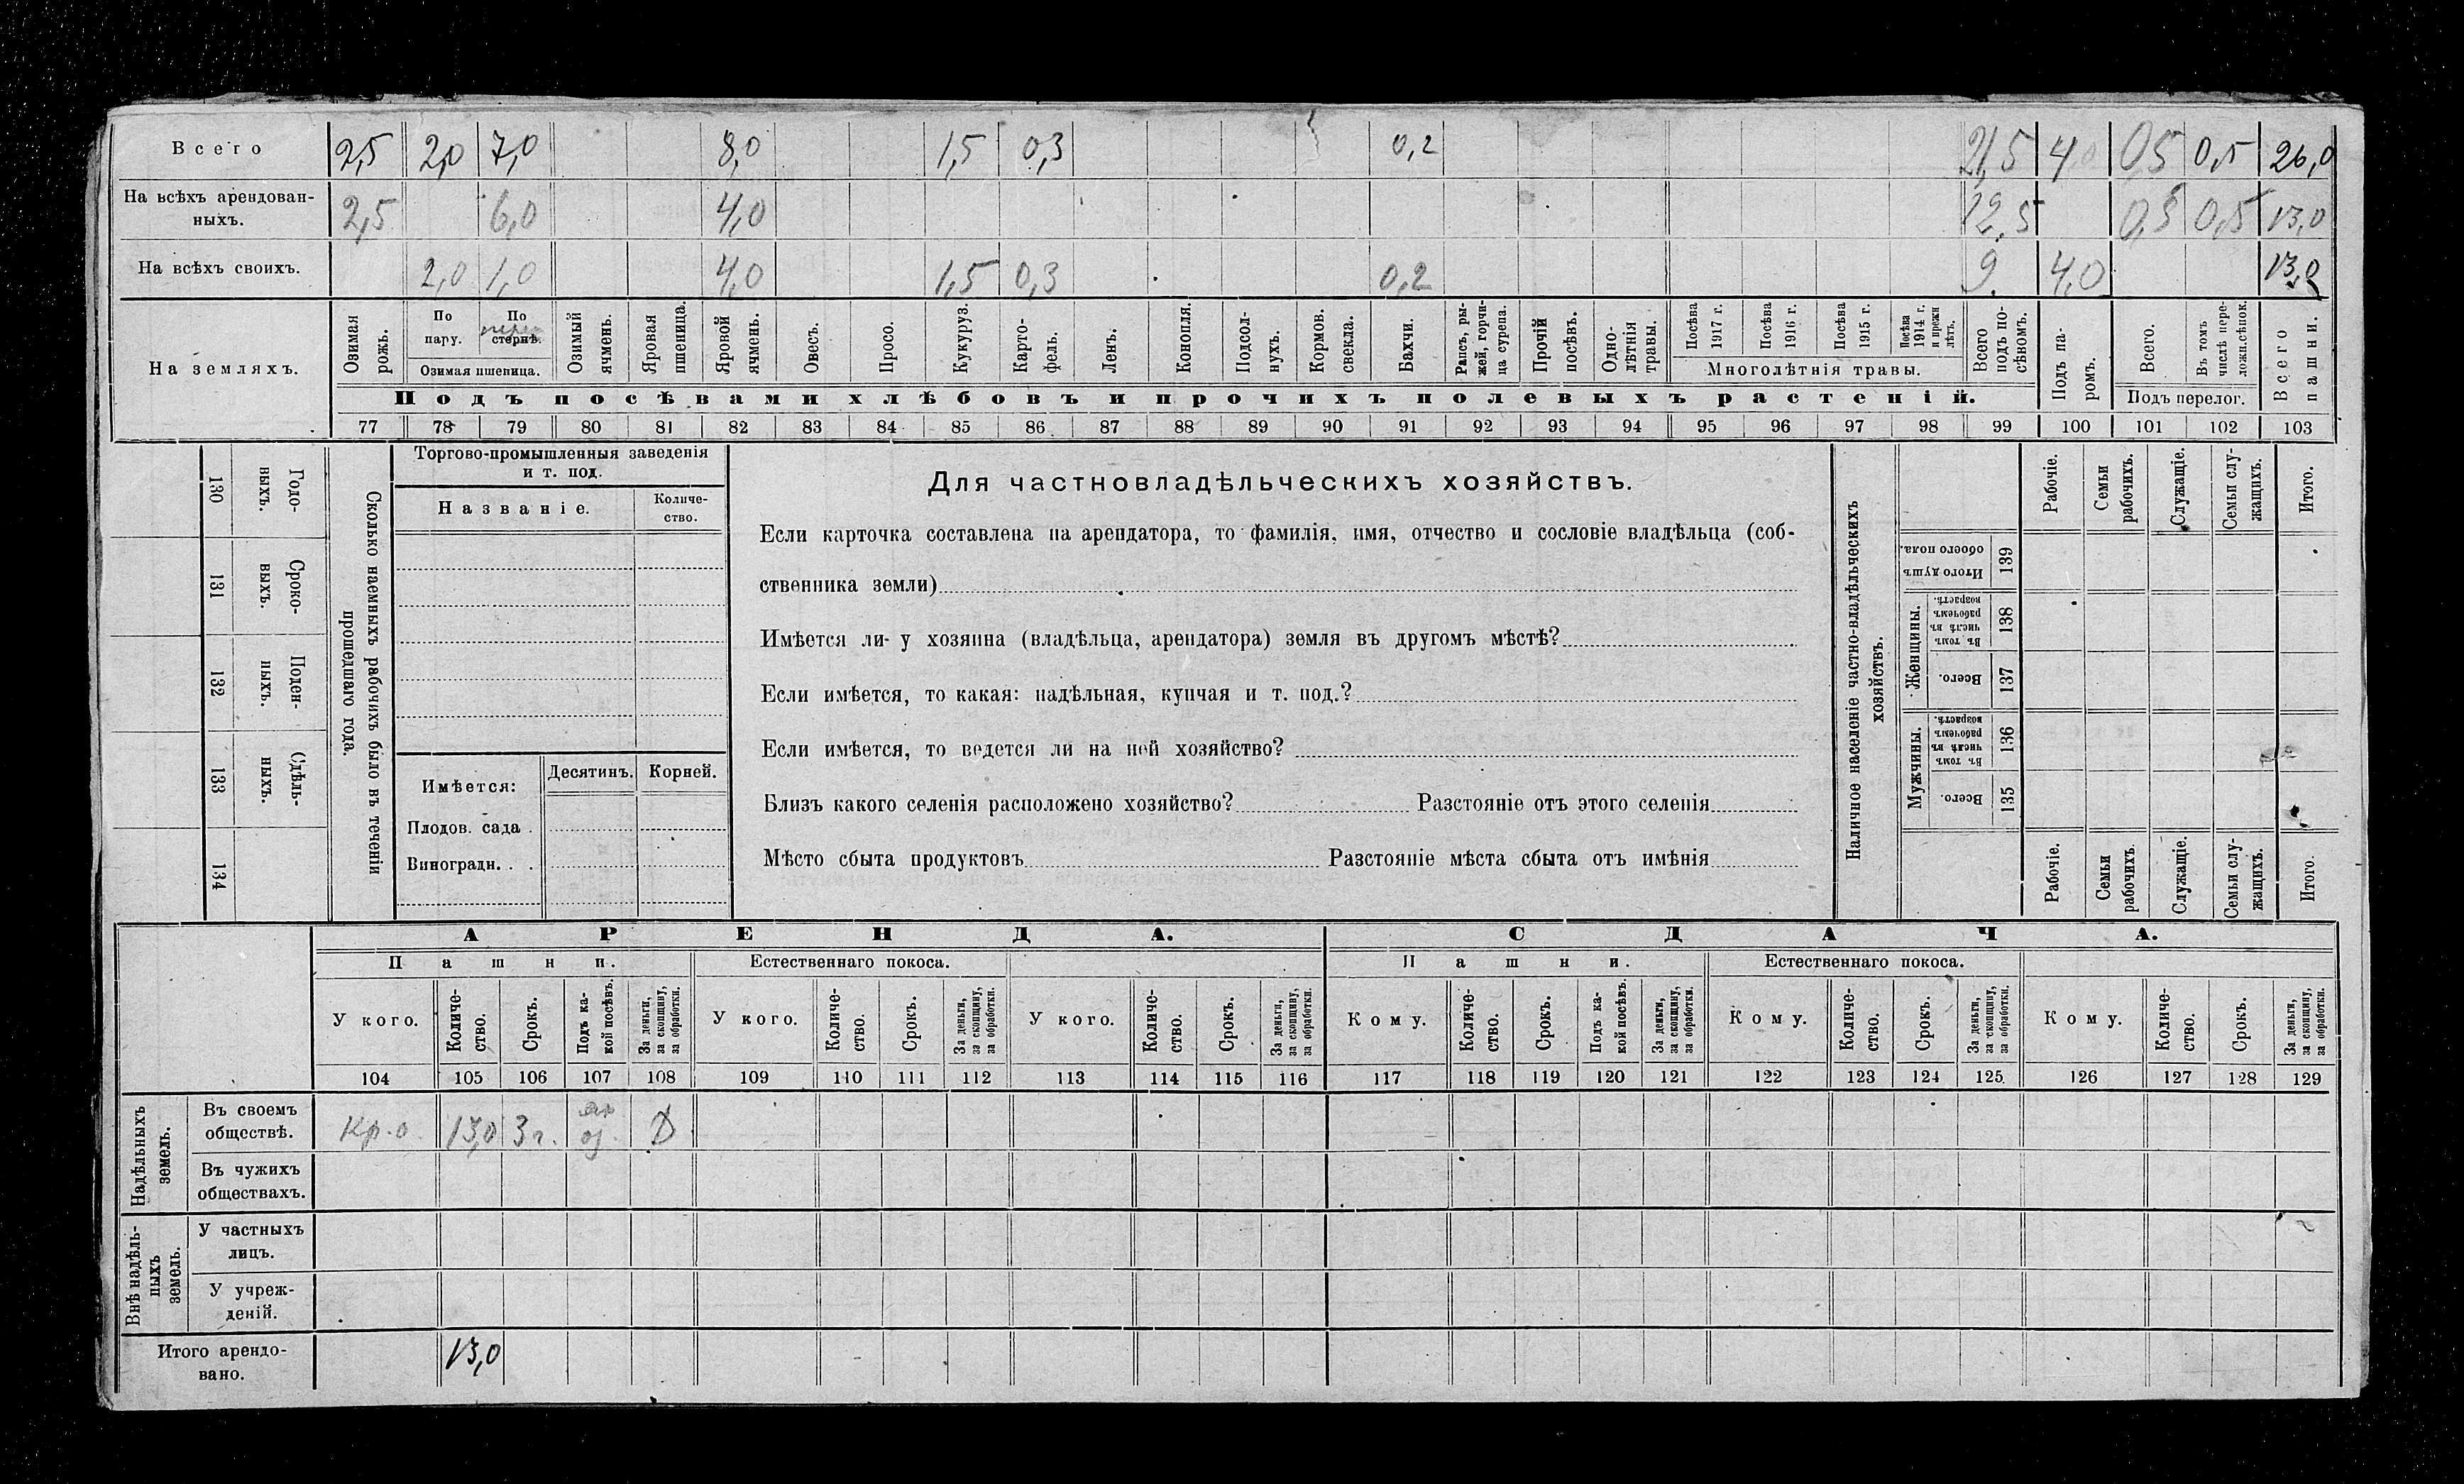 Всего 2,5 2,0 7,0 8,0 1,5 0,3 0,2 21,5 4,0 0,5 0,5 26,0
На всѣхъ арендован-
ныхъ. 2,5 6,0 4,0 12,5 0,5 0,5 13,0
На всѣхъ своихъ. 2,0 1,0 4,0 1,5 0,3 0,2 9. 4,0 13,0
На земляхъ.
Озимая рожь.
По пару.
По стернѣ.
Озимая пшеница.
Озимый ячмень.
Яровая пшеница.
Яровой ячмень.
Овесъ.
Просо.
Кукуруз.
Карто-
фель.
Ленъ.
Конопля.
Подсол-
нухъ.
Кормов. свекла.
Бахчи.
Рапсъ, ры-
жей, горчи-
ца сурепа.
Прочій посѣвъ.
Одно-
лѣтнія травы.
Посѣва 1917 г.
Посѣва 1916 г.
Посѣва 1915 г.
Посѣва 1914 г. и прежн лѣтъ.
Многолѣтнія травы.
Всего подъ по-
сѣвомъ.
Подъ па-
ромъ.
Всего.
Въ томъ числѣ пере-
ложн.сѣнок.
Подъ перелог.
Всего пашни.
Подъ посѣвами хлѣбовъ и прочихъ полевыхъ растеній.
77 78 79 80 81 82 83 84 85 86 87 88 89 90 91 92 93 94 95 96 97 98 99 100 101 102 103
130 Годо-
ныхъ.
131 Сроко-
выхъ.
132 Поден-
ныхъ.
133 Сдѣль-
ныхъ.
134
Сколько наемныхъ рабочихъ было въ теченіи
прошедшаго года.
Торгово-промышленныя заведенія
и т. под.
Названіе.
Количе-
ство.
Имѣется: Десятинъ. Корней.
Плодов. сада .
Виноградн. . .
Для частновладѣльческихъ хозяйствъ.
Если карточка составлена на арендатора, то фамилія, имя, отчество и сословіе владѣльца (соб-
ственника земли)
Имѣется ли у хозяина (владѣльца, арендатора) земля въ другомъ мѣстѣ?
Если имѣется, то какая: надѣльная, купчая и т. под.?
Если имѣется, то ведется ли на ней хозяйство?
Близъ какого селенія расположено хозяйство? Разстояніе отъ этого селенія
Мѣсто сбыта продуктовъ Разстояніе мѣста сбыта отъ имѣнія
Наличное населеніе частно-владѣльческихъ
хозяйствъ.
Рабочіе.
Семьи рабочихъ.
Служащіе.
Семьи слу-
жащихъ.
Итого.
Итого душъ обоего пола. 139
Женщины.
Въ томъ числѣ въ рабочемъ возрастѣ. 138
Всего. 137
Мужчины.
Въ томъ числѣ въ рабочемъ возрастѣ. 136
Всего. 135
Рабочіе.
Семьи рабочихъ.
Служащіе.
Семьи слу-
жащихъ.
Итого.
АРЕНДА. СДАЧА.
Пашни. Естественнаго покоса. Пашни. Естественнаго покоса.
У кого.
Количе-
ство.
Срокъ.
Подъ ка-
кой посѣвъ.
За деньги, за скопщину, за обработки.
У кого.
Количе-
ство.
Срокъ.
За деньги, за скопщину, за обработки.
У кого.
Количе-
ство.
Срокъ.
За деньги, за скопщину, за обработки.
Кому.
Количе-
ство.
Срокъ.
Подъ ка-
кой посѣвъ.
За деньги, за скопщину, за обработки.
Кому.
Количе-
ство.
Срокъ.
За деньги, за скопщину, за обработки.
Кому.
Количе-
ство.
Срокъ.
За деньги, за скопщину, за обработки.
104 105 106 107 108 109 110 111 112 113 114 115 116 117 118 119 120 121 122 123 124 125 126 127 128 129
Надѣльныхъ земель.
Въ своемъ
обществѣ. Кр. о. 13,0 3 г. оз. Д
Въ чужихъ
обществахъ.
Внѣ надѣль-
ныхъ земель.
У частныхъ
лицъ.
У учреж-
деній.
Итого арендо-
вано. 13,0